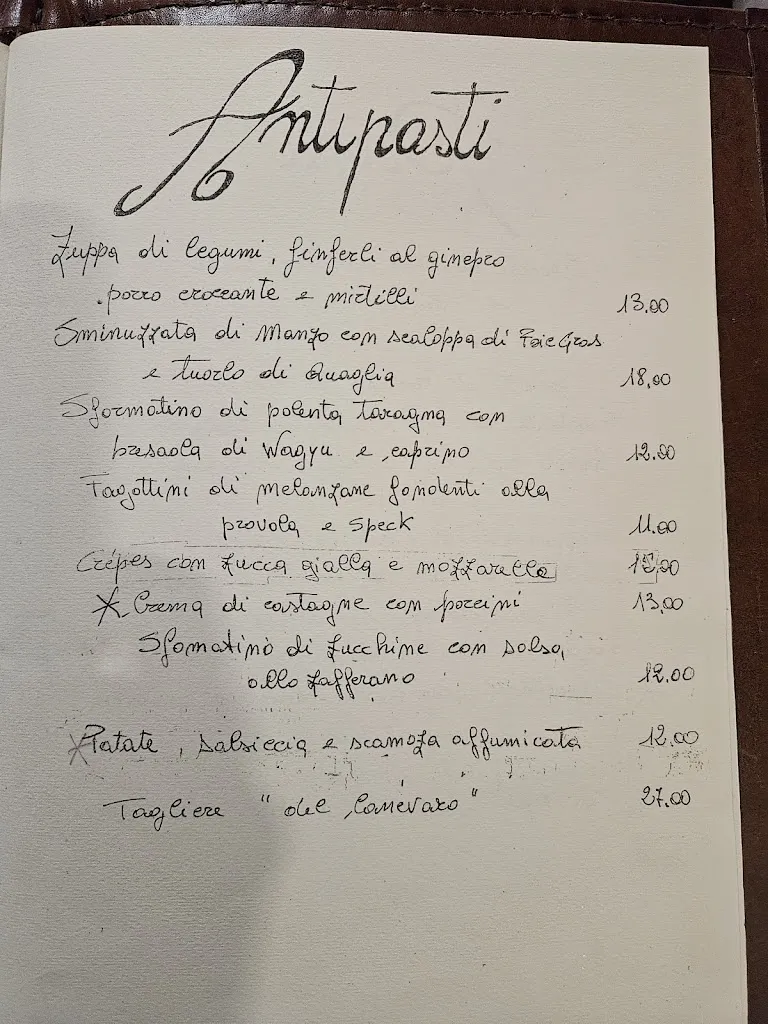 Antipasti
Zuppa di legumi, finferli al ginepro
porro croccante e mirtilli 13.00
Sminuzzata di Manzo con scaloppa di Foie Gras
e tuorlo di Quaglia 18,00
Sformatino di polenta Taragna con
bresaola di Wagyu e caprino 12.00
Fagottini di melanzane fondenti alla
provola e Speck 11.00
Crépes con zucca gialla e mozzarella
* Crema di castagne con porcini 13,00
Sfomatino di zucchine con salsa
allo zafferano 12.00
*Patate, salsiccia e scamoza affumicata 12.00
Tagliere "del Canevaro" 27.00